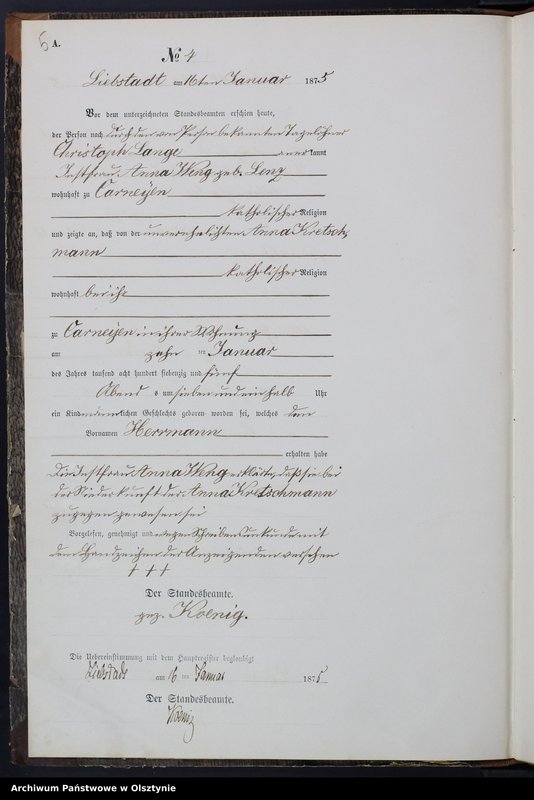 5 A.
No 4
Liebstadt am 16ten Januar 1875
Vor dem unterzeichneten Standesbeamten erschien heute,
der Person nach durch den von Person bekannten Tagelöhner
Christoph Lange anerkannt
Instfrau Anna Weng geb. Lenz
wohnhaft zu Carneijen
katholischer Religion
und zeigte an, daß von der unverehelichten Anna Kretsch-
mann
katholischer Religion
wohnhaft bei ihr
zu Carneijen in ihrer Wohnung
am zehn ten Januar
des Jahres tausend acht hundert siebenzig und fünf
Abend s um sieben und ein halb Uhr
ein Kind männlichen Geschlechts geboren worden sei, welches den
Vornamen Herrmann
erhalten habe
Die Instfrau Anna Weng erklärte, daß sie bei
der Niederkunft der Anna Kretschmann
zugegen gewesen sei
Vorgelesen, genehmigt und wegen Schreibensunkunde mit
dem Handzeichen der Anzeigenden versehen
+ + +
Der Standesbeamte.
gez. Koenig.
Die Uebereinstimmung mit dem Hauptregister beglaubigt
Liebstadt am 16 ten Januar 1875
Der Standesbeamte.
Koenig
Archiwum Państwowe w Olsztynie